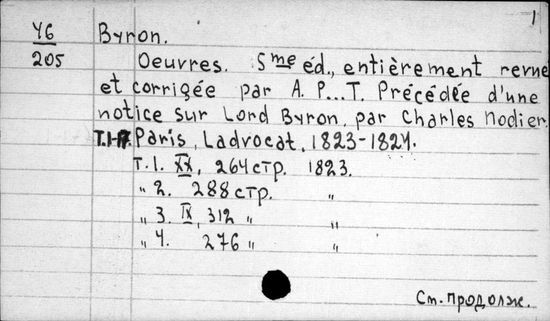 1
У6
205
Byron.
Oeuvres. 5me éd., entièrement revue
et corrigée par A. P...T. Précédée d'une
notice sur Lord Byron, par Charles Nodier.
Paris, Ladvocat, 1823-1824.
T.1. XX, 264 стр. 1823.
„ 2. 288 стр. „
„ 3. IX, 312 „ „
„ 4. 276 „ „
См. продолж.